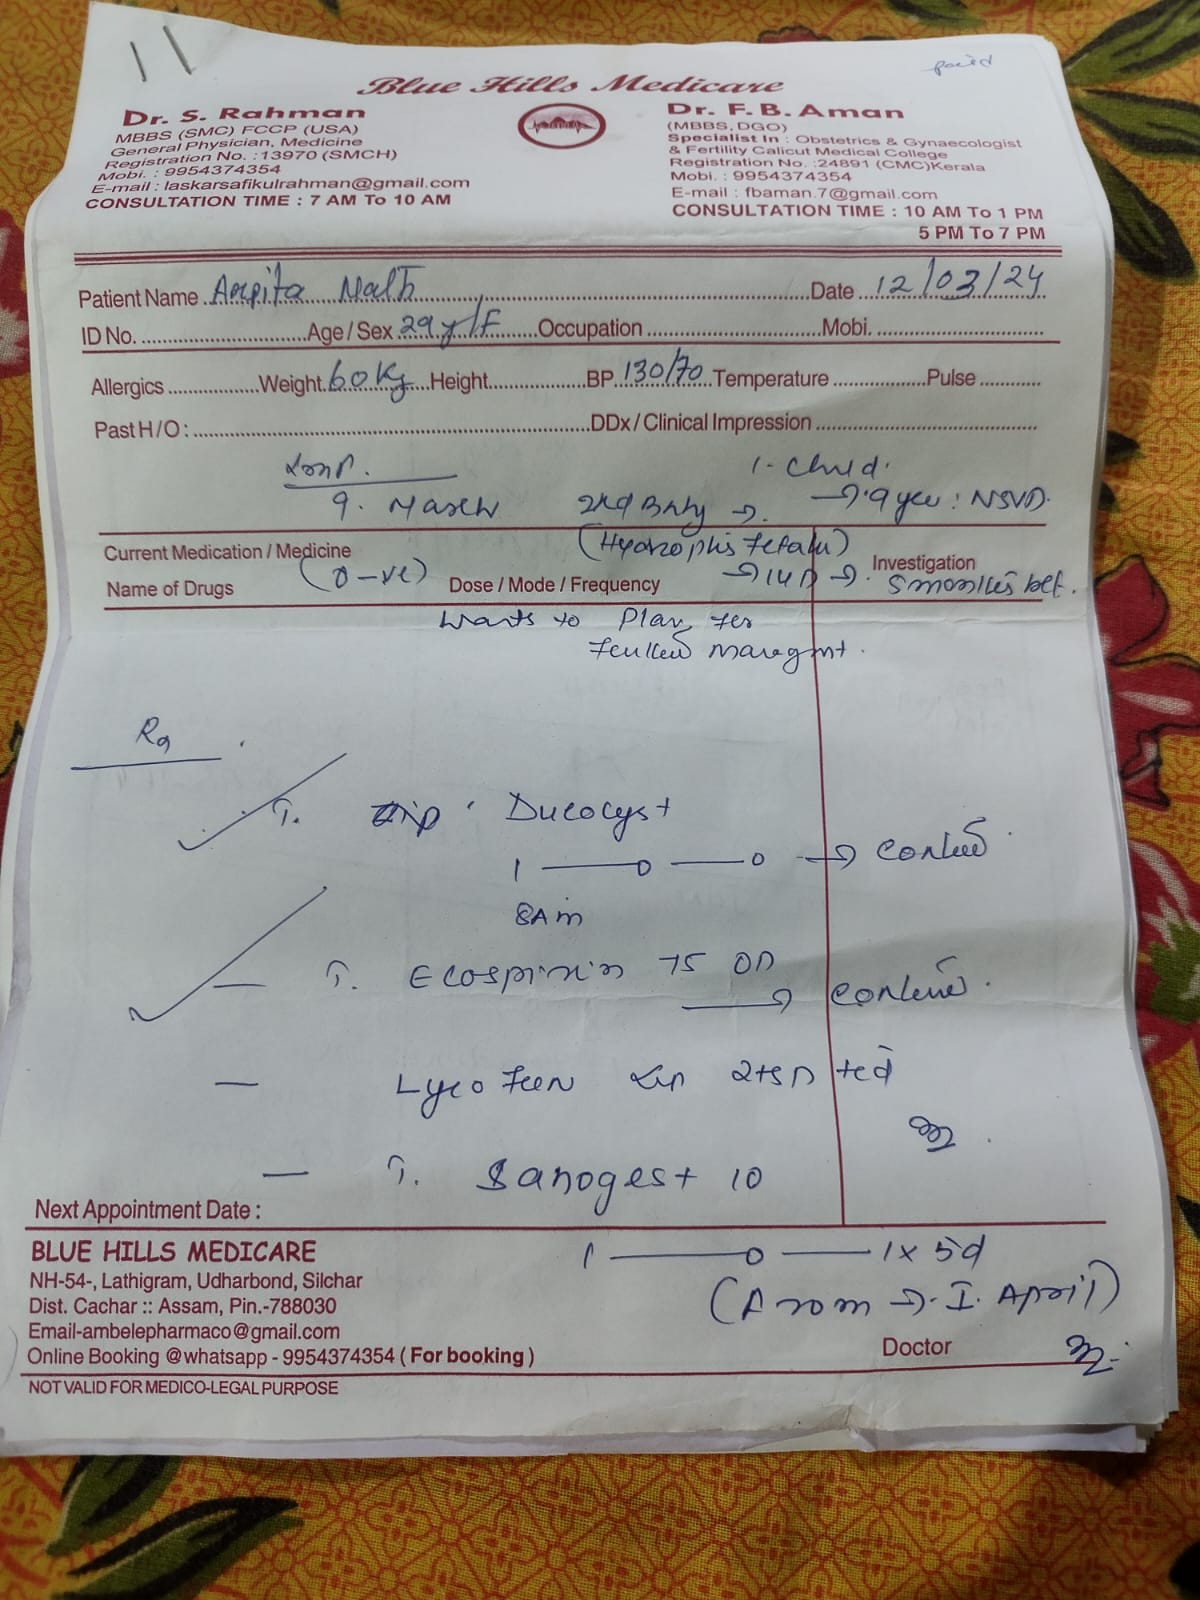 paid
Blue Hills Medicare
Dr. S. Rahman
MBBS (SMC) FCCP (USA)
General Physician, Medicine
Registration No. :13970 (SMCH)
Mobi. : 9954374354
E-mail : laskarsafikulrahman@gmail.com
CONSULTATION TIME : 7 AM To 10 AM
Dr. F. B. Aman
(MBBS, DGO)
Specialist In : Obstetrics & Gynaecologist
& Fertility Calicut Medical College
Registration No. :24891 (CMC)Kerala
Mobi. : 9954374354
E-mail : fbaman.7@gmail.com
CONSULTATION TIME : 10 AM To 1 PM
5 PM To 7 PM
Patient Name Arpita Date 12/03/24
ID No. Age / Sex 29 y/F Occupation Mobi.
Allergics Weight 60 Kg Height BP 130/70 Temperature Pulse
Past H / O : DDx / Clinical Impression
1 - Child.
9. March 2nd Baby → → 9 year : NSVD.
Current Medication / Medicine (Hydrophis Fetalis) Investigation
Name of Drugs (O -ve) Dose / Mode / Frequency → 14 D →
Wants to Plan for
Rx
T. Ducocyst
1 — 0 — 0 →
8 Am
— T. Ecospirin 75 OD
→
— Lycofer
— T. Sanogest 10
Next Appointment Date :
1 — 0 — 1 x 5d
(From → 1. April)
BLUE HILLS MEDICARE
NH-54-, Lathigram, Udharbond, Silchar
Dist. Cachar :: Assam, Pin.-788030
Email-ambelepharmaco@gmail.com
Online Booking @whatsapp - 9954374354 ( For booking )
Doctor
NOT VALID FOR MEDICO-LEGAL PURPOSE